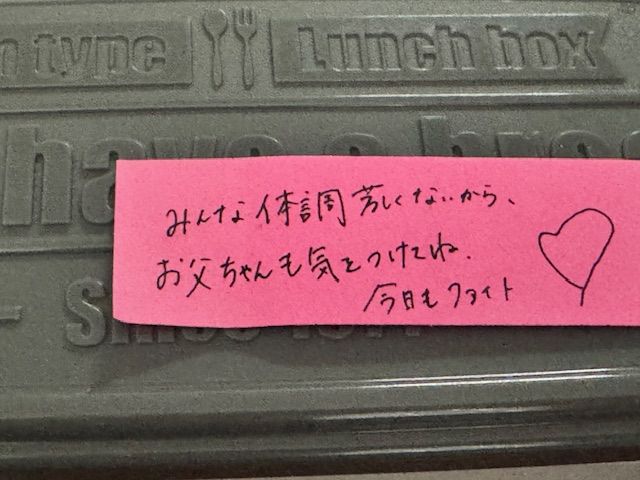 n type Lunch box
have a bre
みんな体調芳しくないから、
お父ちゃんも気をつけてね.
今日もファイト